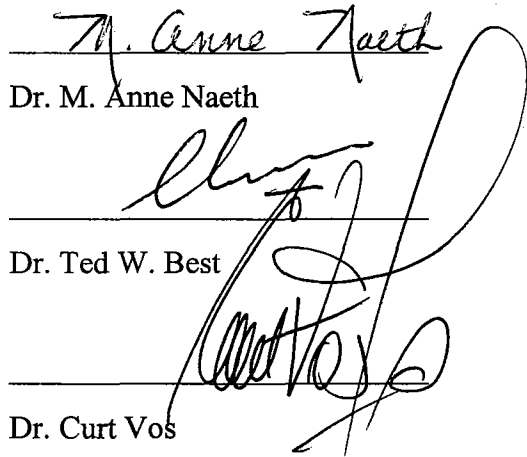 M. Anne Naeth
Dr. M. Anne Naeth
Dr. Ted W. Best
Curt Vos
Dr. Curt Vos